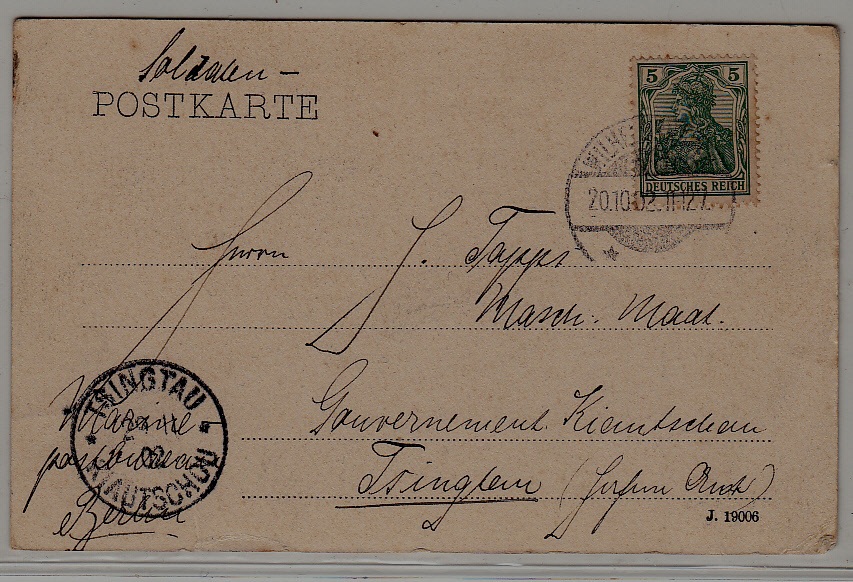 Soldaten -
POSTKARTE
5 5
DEUTSCHES REICH
20.10.02. 11-12 V.
Herrn J. Tapps
Masch. Maat.
Gouvernement Kiautschou
Tsingtau
TSINGTAU
02
KIAUTSCHOU
Marine-
postbureau
Berlin
J. 19006